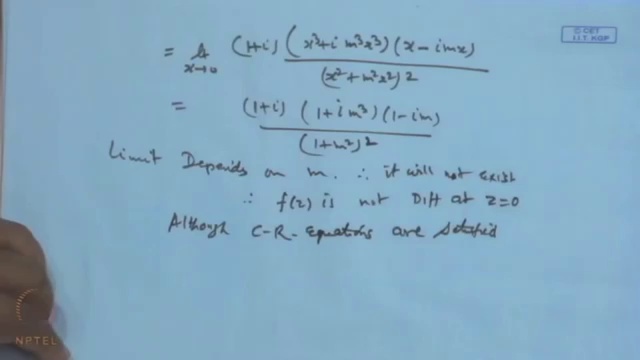 © CET
I.I.T. KGP
= lt x→0 (1+i) (x³+i m³x³) (x−imx) / (x²+m²x²)²
= (1+i) (1+im³) (1−im) / (1+m²)²
Limit Depends on m. ∴ it will not exist
∴ f(z) is not Diff at z=0
Although C-R- Equations are satisfied
NPTEL